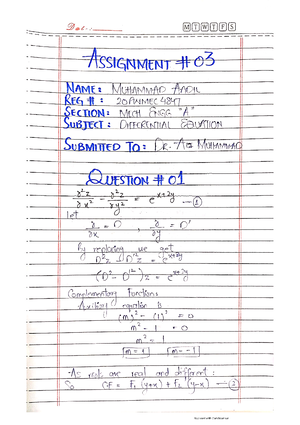 Date:
M T W T F S
ASSIGNMENT # 03
NAME: MUHAMMAD AADIL
REG #: 20PWMEC4847
SECTION: MECH ENGG "A"
SUBJECT: DIFFERENTIAL EQUATION
SUBMITTED TO: DR. MUHAMMAD
QUESTION # 01
∂²z/∂x² - ∂²z/∂y² = e^(x+2y) — ①
Let
∂/∂x = D , ∂/∂y = D'
By replacing we get
D²z - D'²z = e^(x+2y)
(D² - D'²)z = e^(x+2y)
Complementary Function:
Auxiliary equation is
(m)² - (1)² = 0
m² - 1 = 0
m² = 1
m = 1 m = -1
As roots are real and different:
So CF = F₁(y+x) + F₂(y-x) — ②